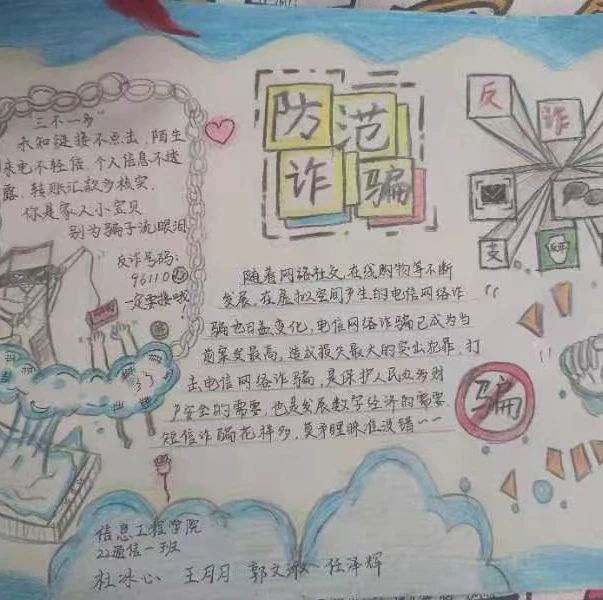 "三不一多"
未知链接不点击,陌生
来电不轻信,个人信息不透
露,转账汇款多核实.
你是家人小宝贝
别为骗子流眼泪
反诈号码:
96110
一定要接哦!
防范
诈骗
反
诈
支
随着网络社交,在线购物等不断
发展,在虚拟空间产生的电信网络诈
骗也日益变化,电信网络诈骗已成为当
前案发最高,造成损失最大的突出犯罪,打
击电信网络诈骗,是保护人民办务财
产安全的需要,也是发展数字经济的需要.
短信诈骗花样多,莫才理睬准没错~~
骗
信息工程学院
22通信一班
杜冰心 王月月 郭文淑 任泽辉